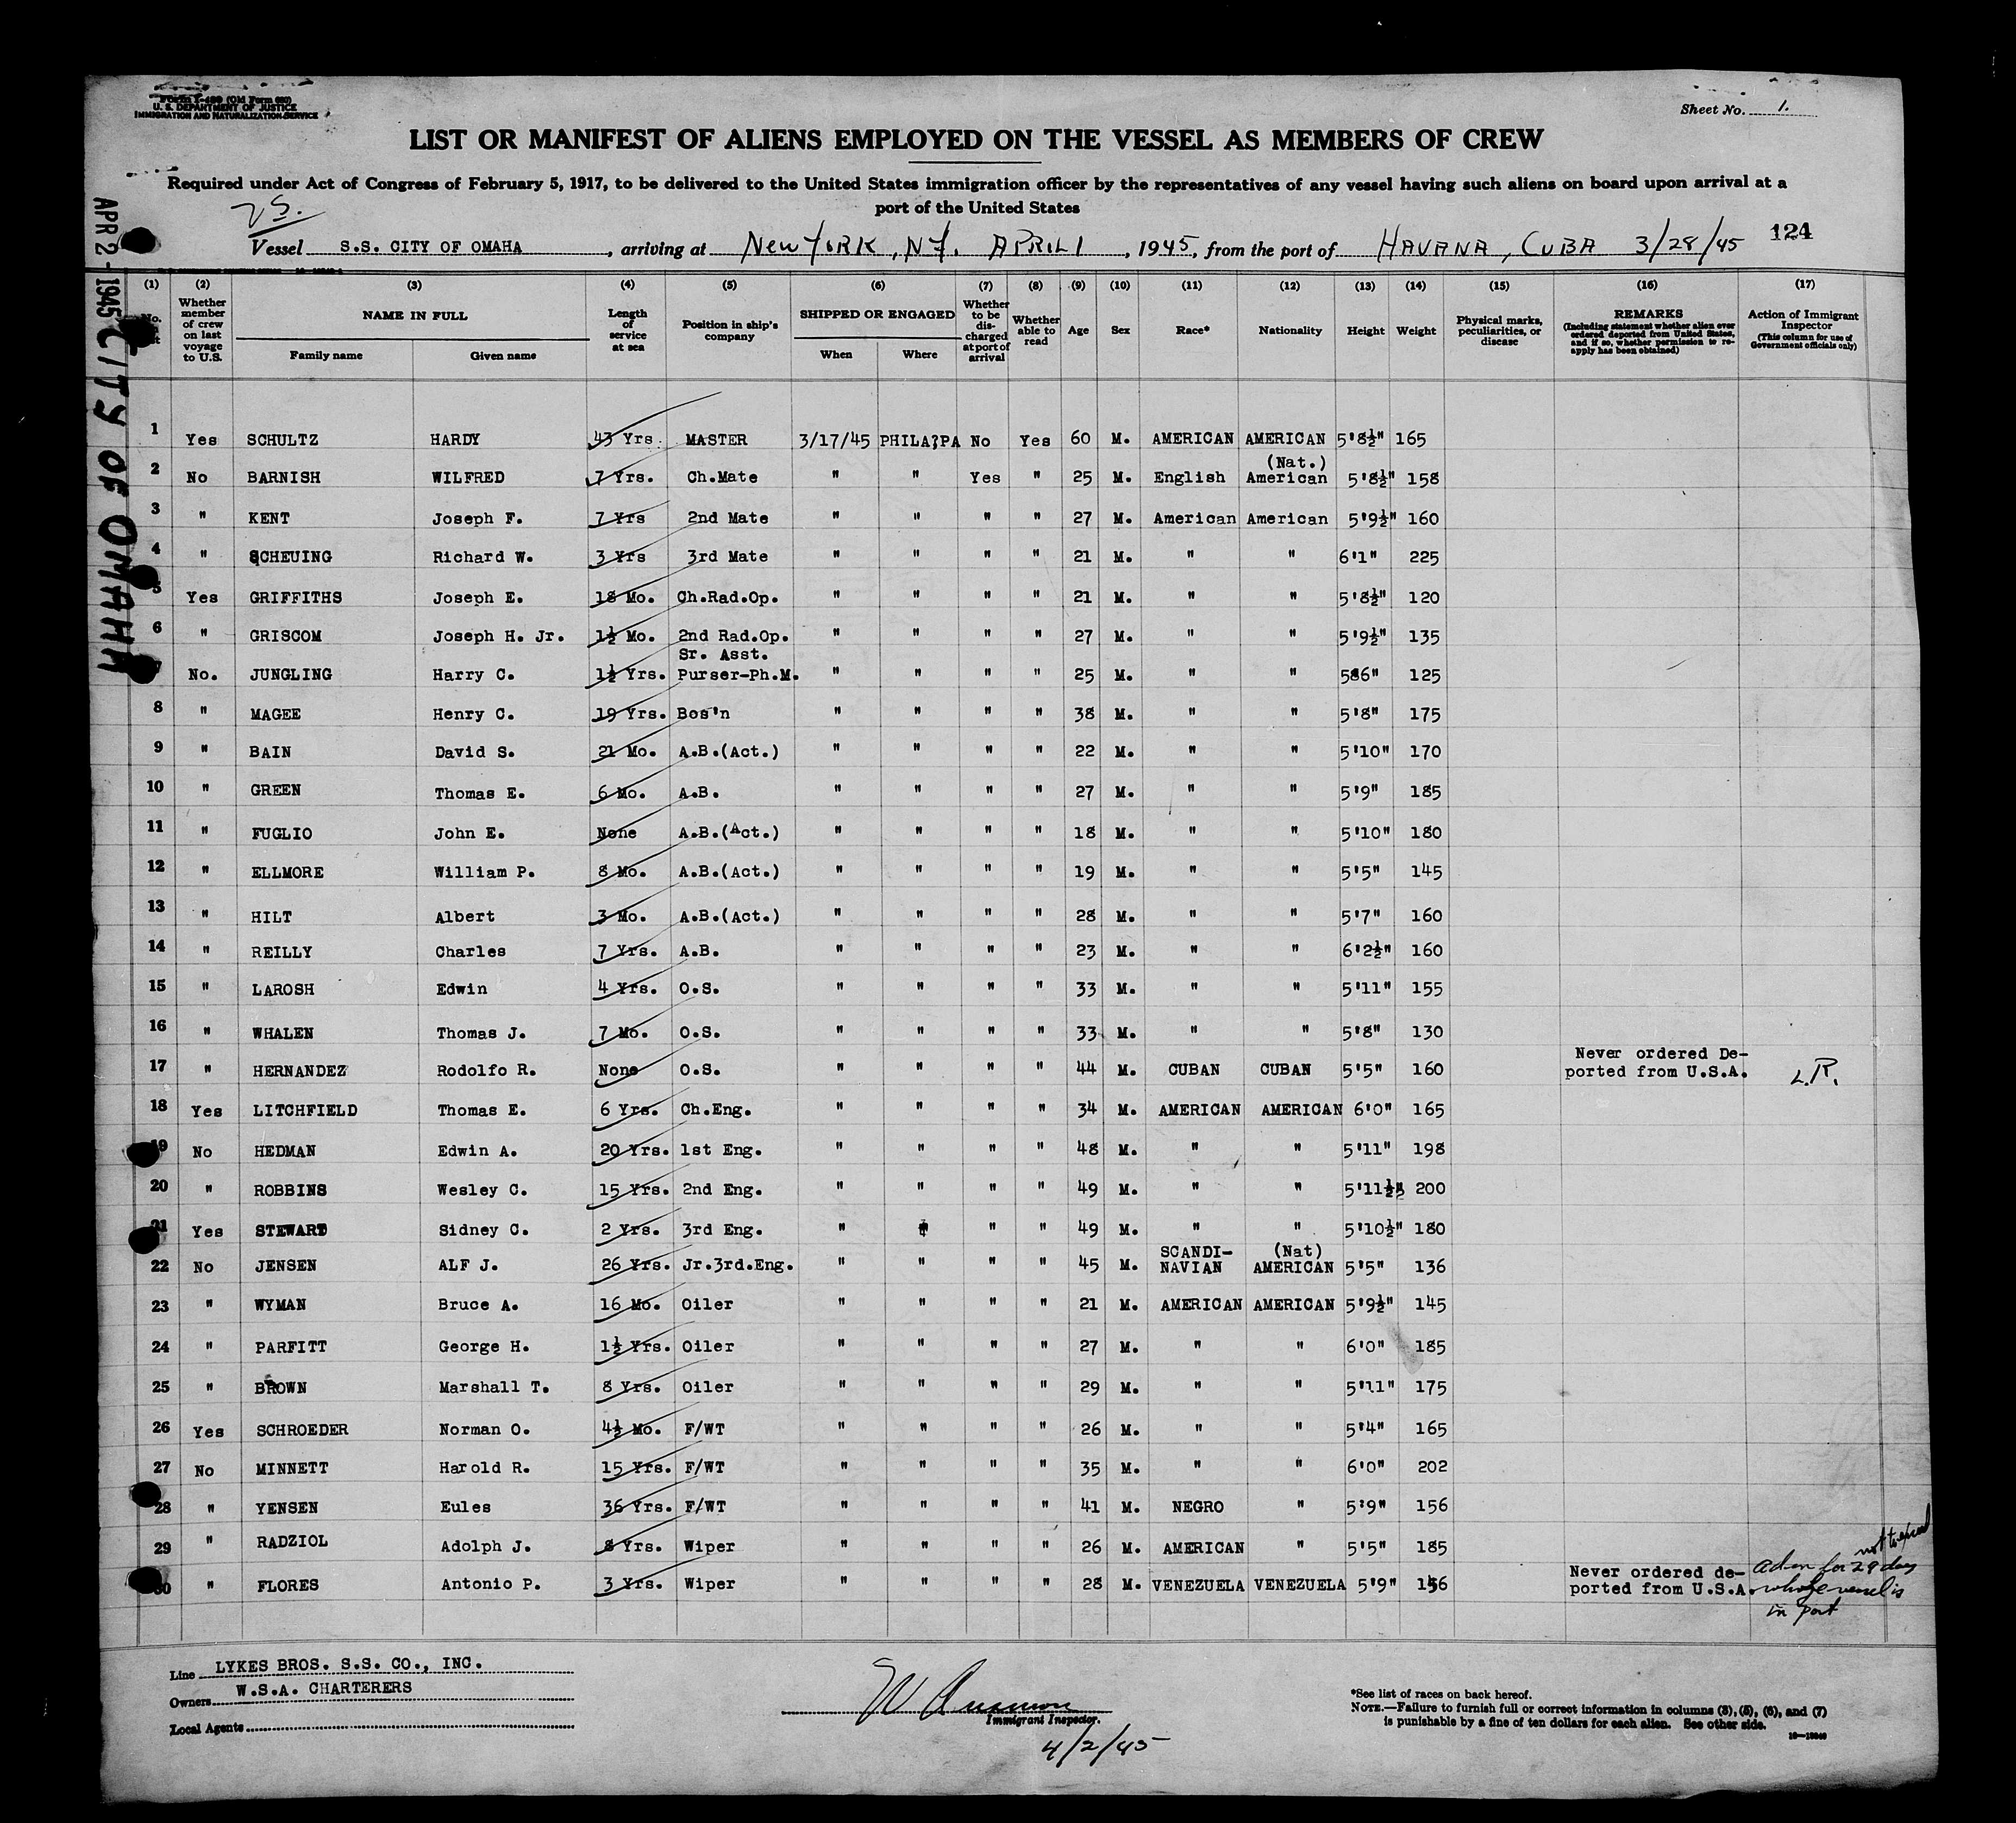 Form I-489 (Old Form 680)
U. S. DEPARTMENT OF JUSTICE
IMMIGRATION AND NATURALIZATION SERVICE
Sheet No. 1.
LIST OR MANIFEST OF ALIENS EMPLOYED ON THE VESSEL AS MEMBERS OF CREW
Required under Act of Congress of February 5, 1917, to be delivered to the United States immigration officer by the representatives of any vessel having such aliens on board upon arrival at a
port of the United States
Vessel S.S. CITY OF OMAHA, arriving at NEW YORK, N.Y. APRIL 1, 1945, from the port of HAVANA, CUBA 3/28/45 124
APR 2-1945 CITY OF OMAHA
(1) (2) (3) (4) (5) (6) (7) (8) (9) (10) (11) (12) (13) (14) (15) (16) (17)
Whether member of crew on last voyage to U.S.
NAME IN FULL
Family name Given name
Length of service at sea
Position in ship's company
SHIPPED OR ENGAGED
When Where
Whether to be discharged at port of arrival
Whether able to read
Age Sex Race* Nationality Height Weight
Physical marks, peculiarities, or disease
REMARKS
(Including statement whether alien ever ordered deported from United States, and if so, whether permission to re-apply has been obtained)
Action of Immigrant Inspector
(This column for use of Government officials only)
1 Yes SCHULTZ HARDY 43 Yrs. MASTER 3/17/45 PHILA,PA No Yes 60 M. AMERICAN AMERICAN 5'8½" 165
2 No BARNISH WILFRED 7 Yrs. Ch.Mate " " Yes " 25 M. English (Nat.) American 5'8½" 158
3 " KENT Joseph F. 7 Yrs 2nd Mate " " " " 27 M. American American 5'9½" 160
4 " SCHEUING Richard W. 3 Yrs 3rd Mate " " " " 21 M. " " 6'1" 225
5 Yes GRIFFITHS Joseph E. 18 Mo. Ch.Rad.Op. " " " " 21 M. " " 5'8½" 120
6 " GRISCOM Joseph H. Jr. 1½ Mo. 2nd Rad.Op. " " " " 27 M. " " 5'9½" 135
7 No. JUNGLING Harry C. 1½ Yrs. Sr. Asst. Purser-Ph.M. " " " " 25 M. " " 586" 125
8 " MAGEE Henry C. 19 Yrs. Bos'n " " " " 38 M. " " 5'8" 175
9 " BAIN David S. 21 Mo. A.B.(Act.) " " " " 22 M. " " 5'10" 170
10 " GREEN Thomas E. 6 Mo. A.B. " " " " 27 M. " " 5'9" 185
11 " FUGLIO John E. None A.B.(Act.) " " " " 18 M. " " 5'10" 180
12 " ELLMORE William P. 8 Mo. A.B.(Act.) " " " " 19 M. " " 5'5" 145
13 " HILT Albert 3 Mo. A.B.(Act.) " " " " 28 M. " " 5'7" 160
14 " REILLY Charles 7 Yrs. A.B. " " " " 23 M. " " 6'2½" 160
15 " LAROSH Edwin 4 Yrs. O.S. " " " " 33 M. " " 5'11" 155
16 " WHALEN Thomas J. 7 Mo. O.S. " " " " 33 M. " " 5'8" 130
17 " HERNANDEZ Rodolfo R. None O.S. " " " " 44 M. CUBAN CUBAN 5'5" 160 Never ordered De-ported from U.S.A. L.R.
18 Yes LITCHFIELD Thomas E. 6 Yrs. Ch.Eng. " " " " 34 M. AMERICAN AMERICAN 6'0" 165
19 No HEDMAN Edwin A. 20 Yrs. 1st Eng. " " " " 48 M. " " 5'11" 198
20 " ROBBINS Wesley C. 15 Yrs. 2nd Eng. " " " " 49 M. " " 5'11½" 200
21 Yes STEWARD Sidney C. 2 Yrs. 3rd Eng. " " " " 49 M. " " 5'10½" 180
22 No JENSEN ALF J. 26 Yrs. Jr.3rd.Eng. " " " " 45 M. SCANDI-NAVIAN (Nat) AMERICAN 5'5" 136
23 " WYMAN Bruce A. 16 Mo. Oiler " " " " 21 M. AMERICAN AMERICAN 5'9½" 145
24 " PARFITT George H. 1½ Yrs. Oiler " " " " 27 M. " " 6'0" 185
25 " BROWN Marshall T. 8 Yrs. Oiler " " " " 29 M. " " 5'11" 175
26 Yes SCHROEDER Norman O. 4½ Mo. F/WT " " " " 26 M. " " 5'4" 165
27 No MINNETT Harold R. 15 Yrs. F/WT " " " " 35 M. " " 6'0" 202
28 " YENSEN Eules 36 Yrs. F/WT " " " " 41 M. NEGRO " 5'9" 156
29 " RADZIOL Adolph J. 8 Yrs. Wiper " " " " 26 M. AMERICAN " 5'5" 185
30 " FLORES Antonio P. 3 Yrs. Wiper " " " " 28 M. VENEZUELA VENEZUELA 5'9" 156 Never ordered de-ported from U.S.A. Adm for 29 days not to exceed while vessel is in port
Line LYKES BROS. S.S. CO., INC.
Owners W.S.A. CHARTERERS
Local Agents
Immigrant Inspector.
4/2/45
*See list of races on back hereof.
NOTE.—Failure to furnish full or correct information in columns (3), (5), (6), and (7)
is punishable by a fine of ten dollars for each alien. See other side.